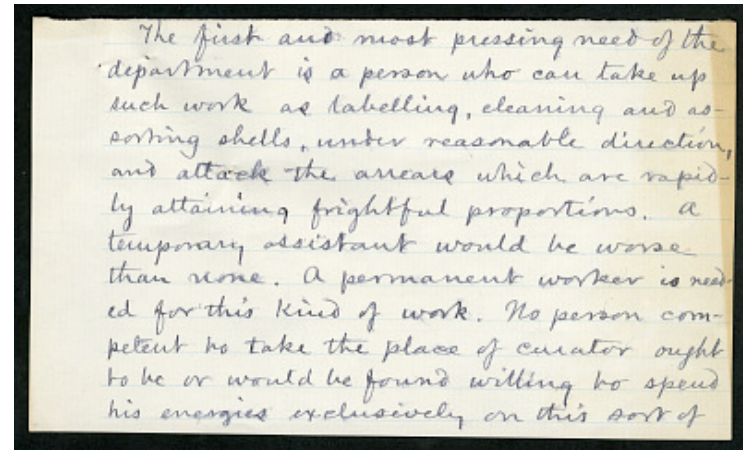 The first and most pressing need of the
department is a person who can take up
such work as labelling, cleaning and as-
sorting shells, under reasonable direction,
and attack the arrears which are rapid-
ly attaining frightful proportions. A
temporary assistant would be worse
than none. A permanent worker is need-
ed for this kind of work. No person com-
petent to take the place of curator ought
to be or would be found willing to spend
his energies exclusively on this sort of